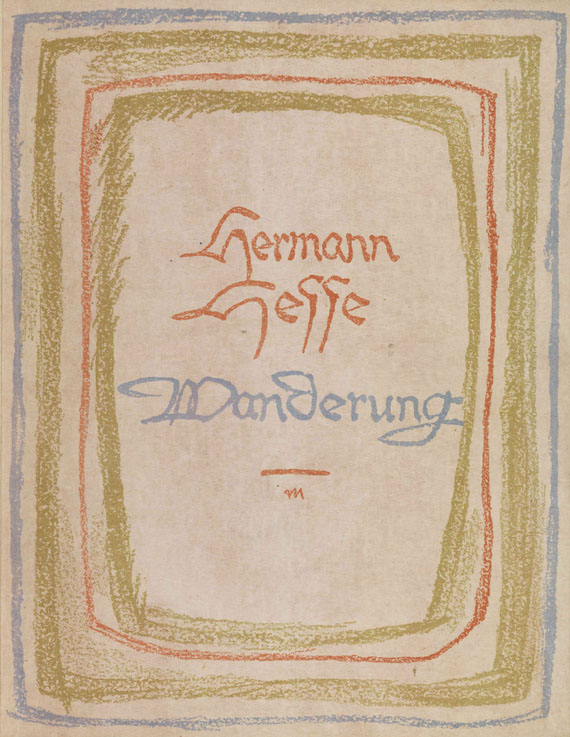 Hermann
Hesse
Wanderung
M